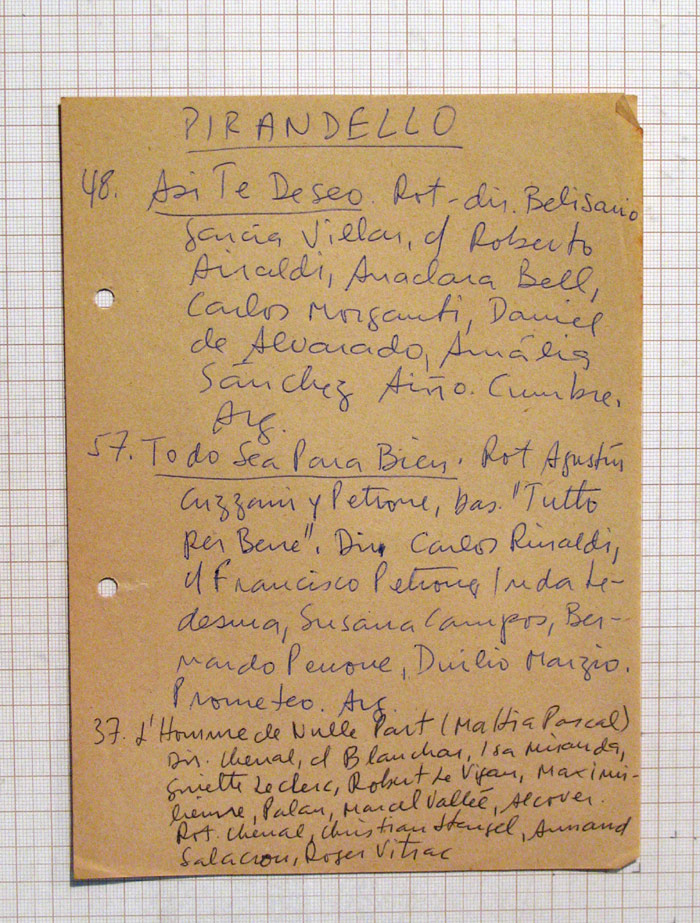 PIRANDELLO
48. Asi Te Deseo. Rot-dir. Belisario
García Villar, c/ Roberto
Airaldi, Anaclara Bell,
Carlos Morganti, Daniel
de Alvarado, Amália
Sánchez Ariño. Cumbre.
Arg.
57. Todo Sea Para Bien. Rot Agustín
Cuzzani y Petrone, bas. "Tutto
per Bene". Dir Carlos Rinaldi,
c/ Francisco Petrone, Inda Le-
desma, Susana Campos, Ber-
nardo Perrone, Duilio Marzio.
Prometeo. Arg.
37. L'Homme de Nulle Part (Mattia Pascal)
Dir. Chenal, c/ Blanchar, Isa Miranda,
Ginette Leclerc, Robert Le Vigan, Maximi-
lienne, Palau, Marcel Vallée, Alcover.
Rot. Chenal, Christian Stengel, Armand
Salacrou, Roger Vitrac